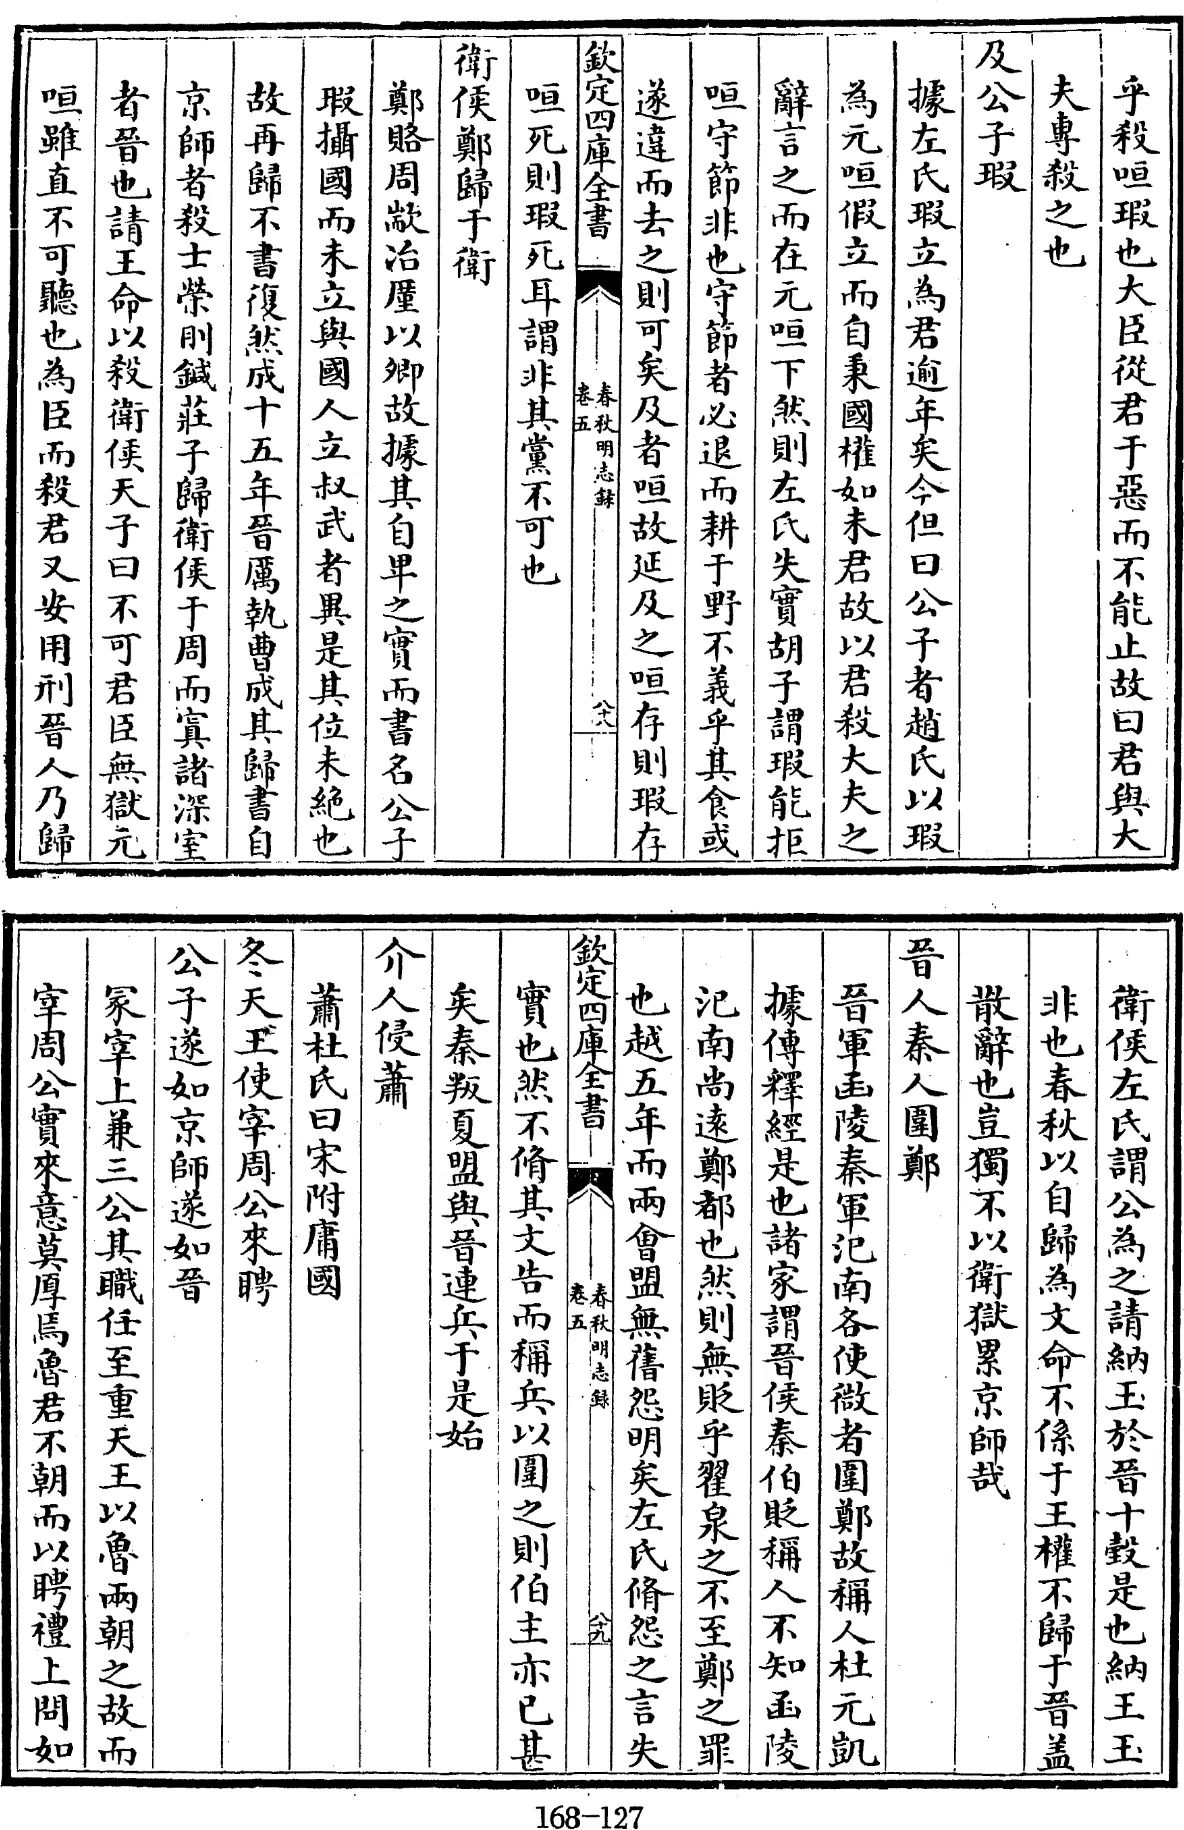 乎殺咺瑕也大臣從君于惡而不能止故曰君與大
夫專殺之也
及公子瑕
據左氏瑕立為君逾年矣今但曰公子者趙氏以瑕
為元咺假立而自秉國權如未君故以君殺大夫之
辭言之而在元咺下然則左氏失實胡子謂瑕能拒
咺守節非也守節者必退而耕于野不義乎其食或
遂違而去之則可矣及者咺故延及之咺存則瑕存
欽定四庫全書
春秋明志録
卷五
八十八
咺死則瑕死耳謂非其黨不可也
衛侯鄭歸于衛
鄭賂周歂冶廑以卿故據其自卑之實而書名公子
瑕攝國而未立與國人立叔武者異是其位未絶也
故再歸不書復然成十五年晉厲執曹成其歸書自
京師者殺士榮刖鍼莊子歸衛侯于周而寘諸深室
者晉也請王命以殺衛侯天子曰不可君臣無獄元
咺雖直不可聽也為臣而殺君又安用刑晉人乃歸
衛侯左氏謂公為之請納玉於晉十瑴是也納王玉
非也春秋以自歸為文命不係于王權不歸于晉盖
散辭也豈獨不以衛獄累京師哉
晉人秦人圍鄭
晉軍函陵秦軍氾南各使微者圍鄭故稱人杜元凱
據傳釋經是也諸家謂晉侯秦伯貶稱人不知函陵
氾南尚遠鄭都也然則無貶乎翟泉之不至鄭之罪
也越五年而兩會盟無舊怨明矣左氏脩怨之言失
欽定四庫全書
春秋明志録
卷五
八十九
實也然不脩其文告而稱兵以圍之則伯主亦已甚
矣秦叛夏盟與晉連兵于是始
介人侵蕭
蕭杜氏曰宋附庸國
冬天王使宰周公來聘
公子遂如京師遂如晉
冡宰上兼三公其職任至重天王以魯兩朝之故而
宰周公實來意莫厚焉魯君不朝而以聘禮上問如
168-127